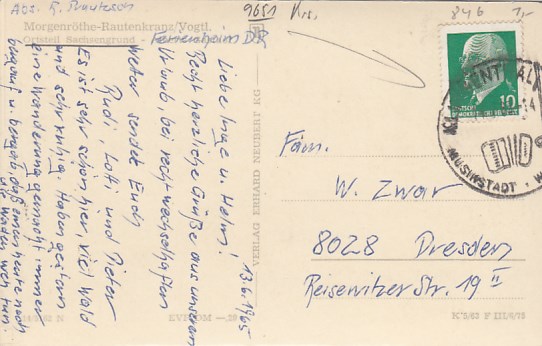 Abs. R.
9651
Krs.
846
1,-
Morgenröthe-Rautenkranz/Vogtl.
Ortsteil Sachsengrund - Ferienheim DR
13.6.1965
Liebe Inge u. Helm!
Recht herzliche Grüße aus unserem
Urlaub, bei recht wechselhaften
Wetter sendet Euch
Rudi, Lotti und Dieter
Es ist sehr schön hier, viel Wald
und sehr ruhig. Haben gestern
eine Wanderung gemacht, immer
bergauf u. bergab, daß einen heute noch
die Waden weh tun.
VERLAG ERHARD NEUBERT KG
KLINGENTHAL
MUSIKSTADT
10
DEUTSCHE
DEMOKRATISCHE REPUBLIK
Fam.
W. Zwar
8028 Dresden
Reisewitzer Str. 19 II
K 5/63 F III/6/13